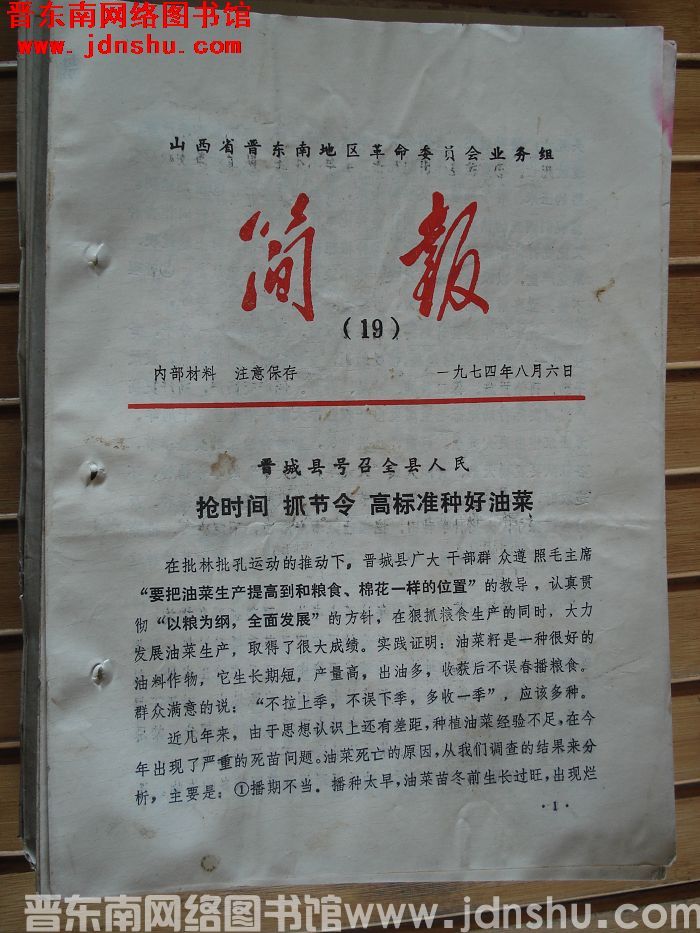 晋东南网络图书馆
www.jdnshu.com
山西省晋东南地区革命委员会业务组
简报
(19)
内部材料 注意保存 一九七四年八月六日
晋城县号召全县人民
抢时间 抓节令 高标准种好油菜
在批林批孔运动的推动下，晋城县广大干部群众遵照毛主席
“要把油菜生产提高到和粮食、棉花一样的位置”的教导，认真贯
彻“以粮为纲，全面发展”的方针，在狠抓粮食生产的同时，大力
发展油菜生产，取得了很大成绩。实践证明：油菜籽是一种很好的
油料作物，它生长期短，产量高，出油多，收获后不误春播粮食。
群众满意的说：“不拉上季，不误下季，多收一季”，应该多种。
近几年来，由于思想认识上还有差距，种植油菜经验不足，在今
年出现了严重的死苗问题。油菜死亡的原因，从我们调查的结果来分
析，主要是：①播期不当。播种太早，油菜苗冬前生长过旺，出现烂
·1·
晋东南网络图书馆www.jdnshu.com